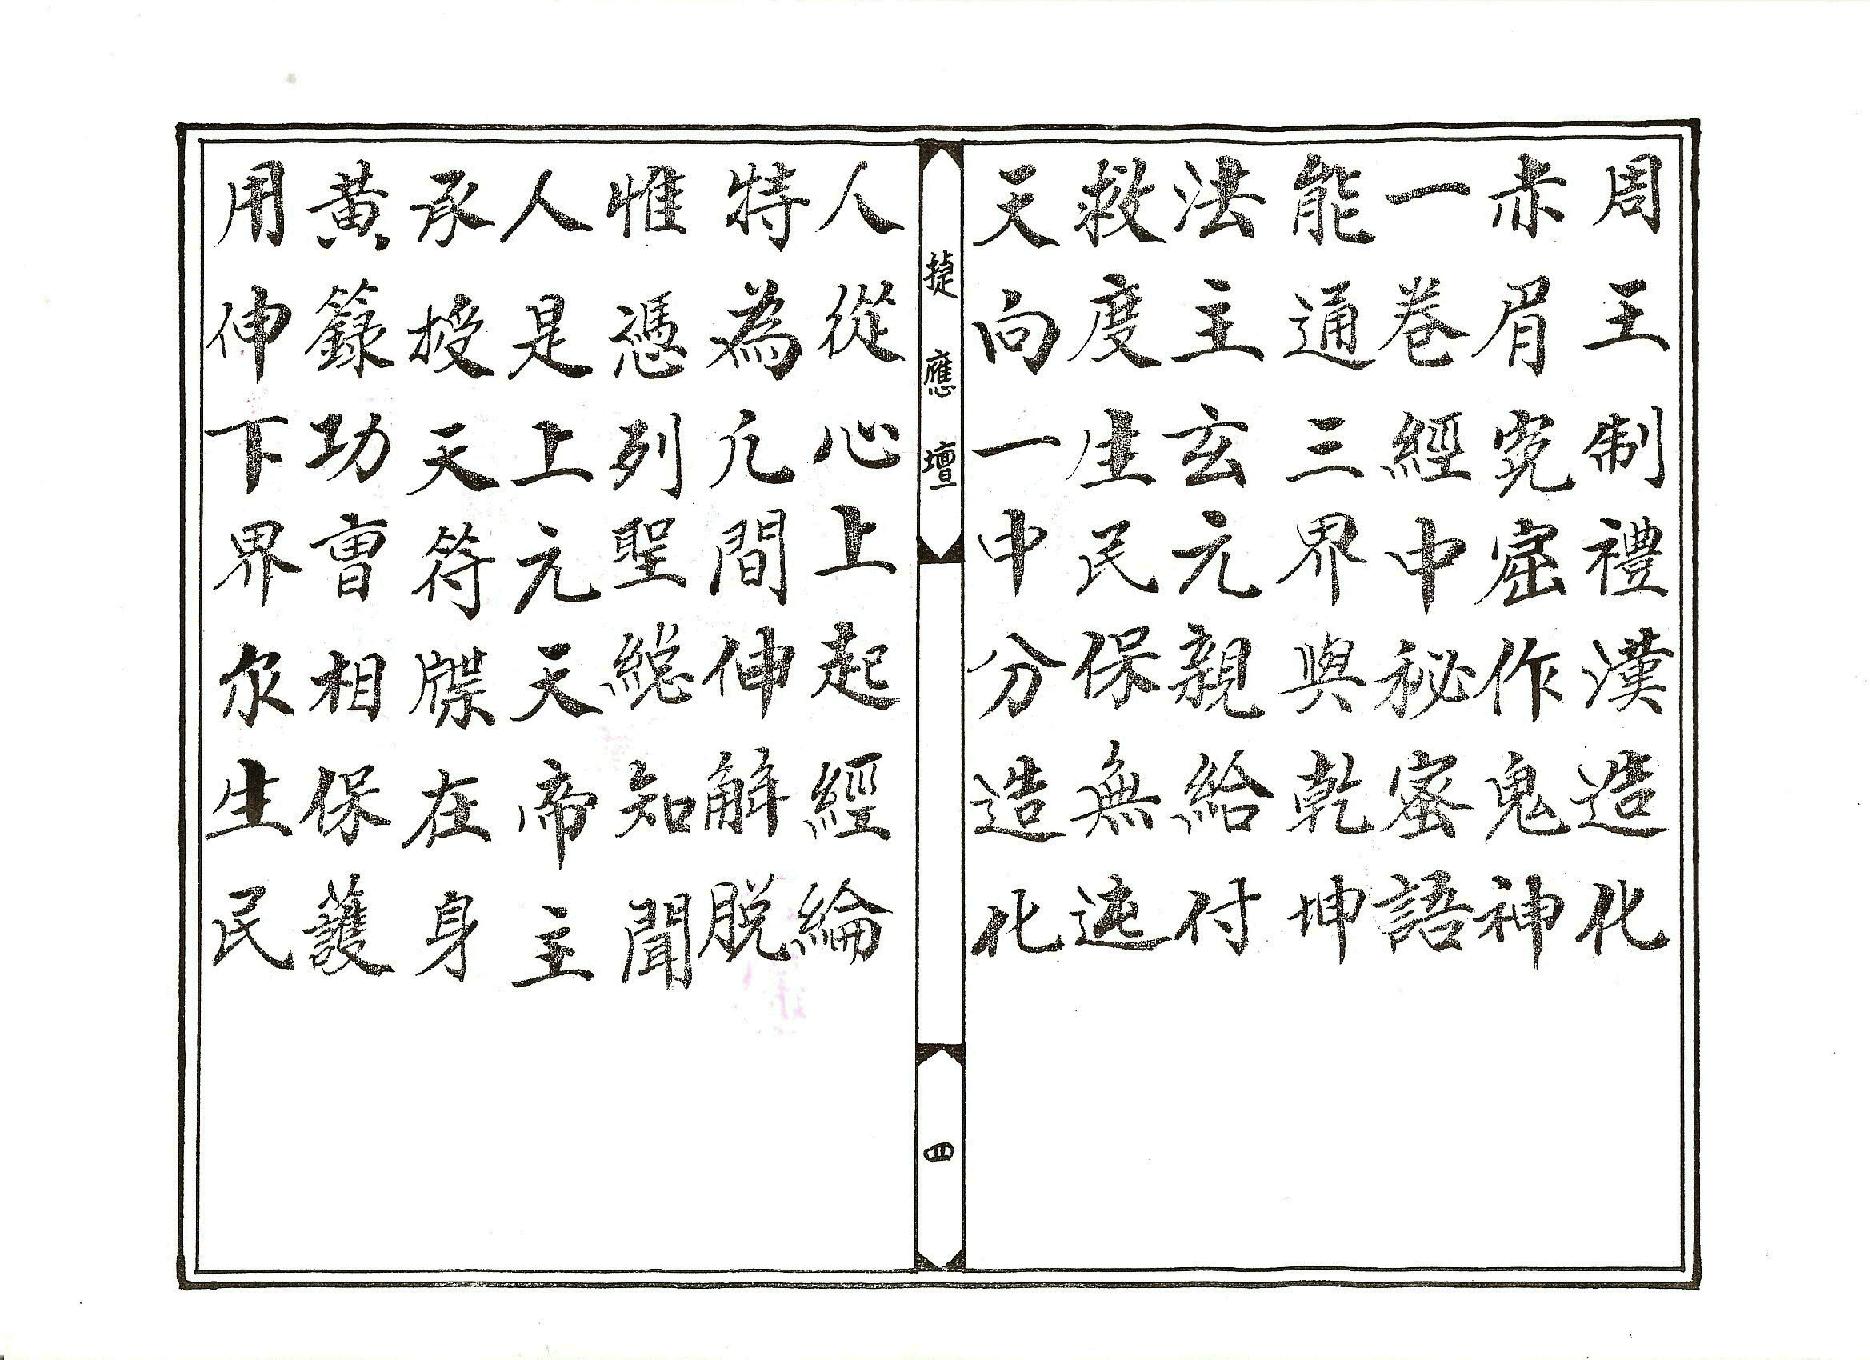 周王制禮漢造化
赤眉窟作鬼神
一卷經中秘密語
能通三界與乾坤
法主玄元親給付
救度生民保無迍
天向一中分造化
捷應壇
四
人從心上起經綸
特為凢間伸觧脱
惟憑列聖総知聞
人是上元天帝主
承授天符牒在身
黄籙功曺相保護
用伸下界尔生民